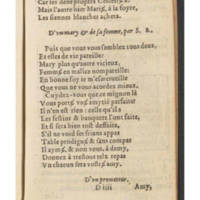 Car les dens propres
Mais l'autre hier Marió, la sotte,
Les siennes blanches acheta.
D'un mary & de sa femme, par S. R.
Puis que vous vous semblez tous deux,
Et estes de vie pareille:
Mary plus qu'autre vicieux,
Femme en malice nompareille:
En bonne foy ie m'esmerueille
Que vous ne vous acordez mieux.
Cuydez-vous que ce mignon là
Vous porte vos amytié parfaite
Il n'en est rien: celle qu'il a
Les festins & banquets l'ont faite,
Et si sera bien tost deffaite,
S'il ne void ses frians appas
Table prodigue & sans compas
Il ayme, & non vous, à demy,
Donnez à tresous tels repas
Vn chacun sera vostre amy.
D'un prometteur.
D iiii Amy,